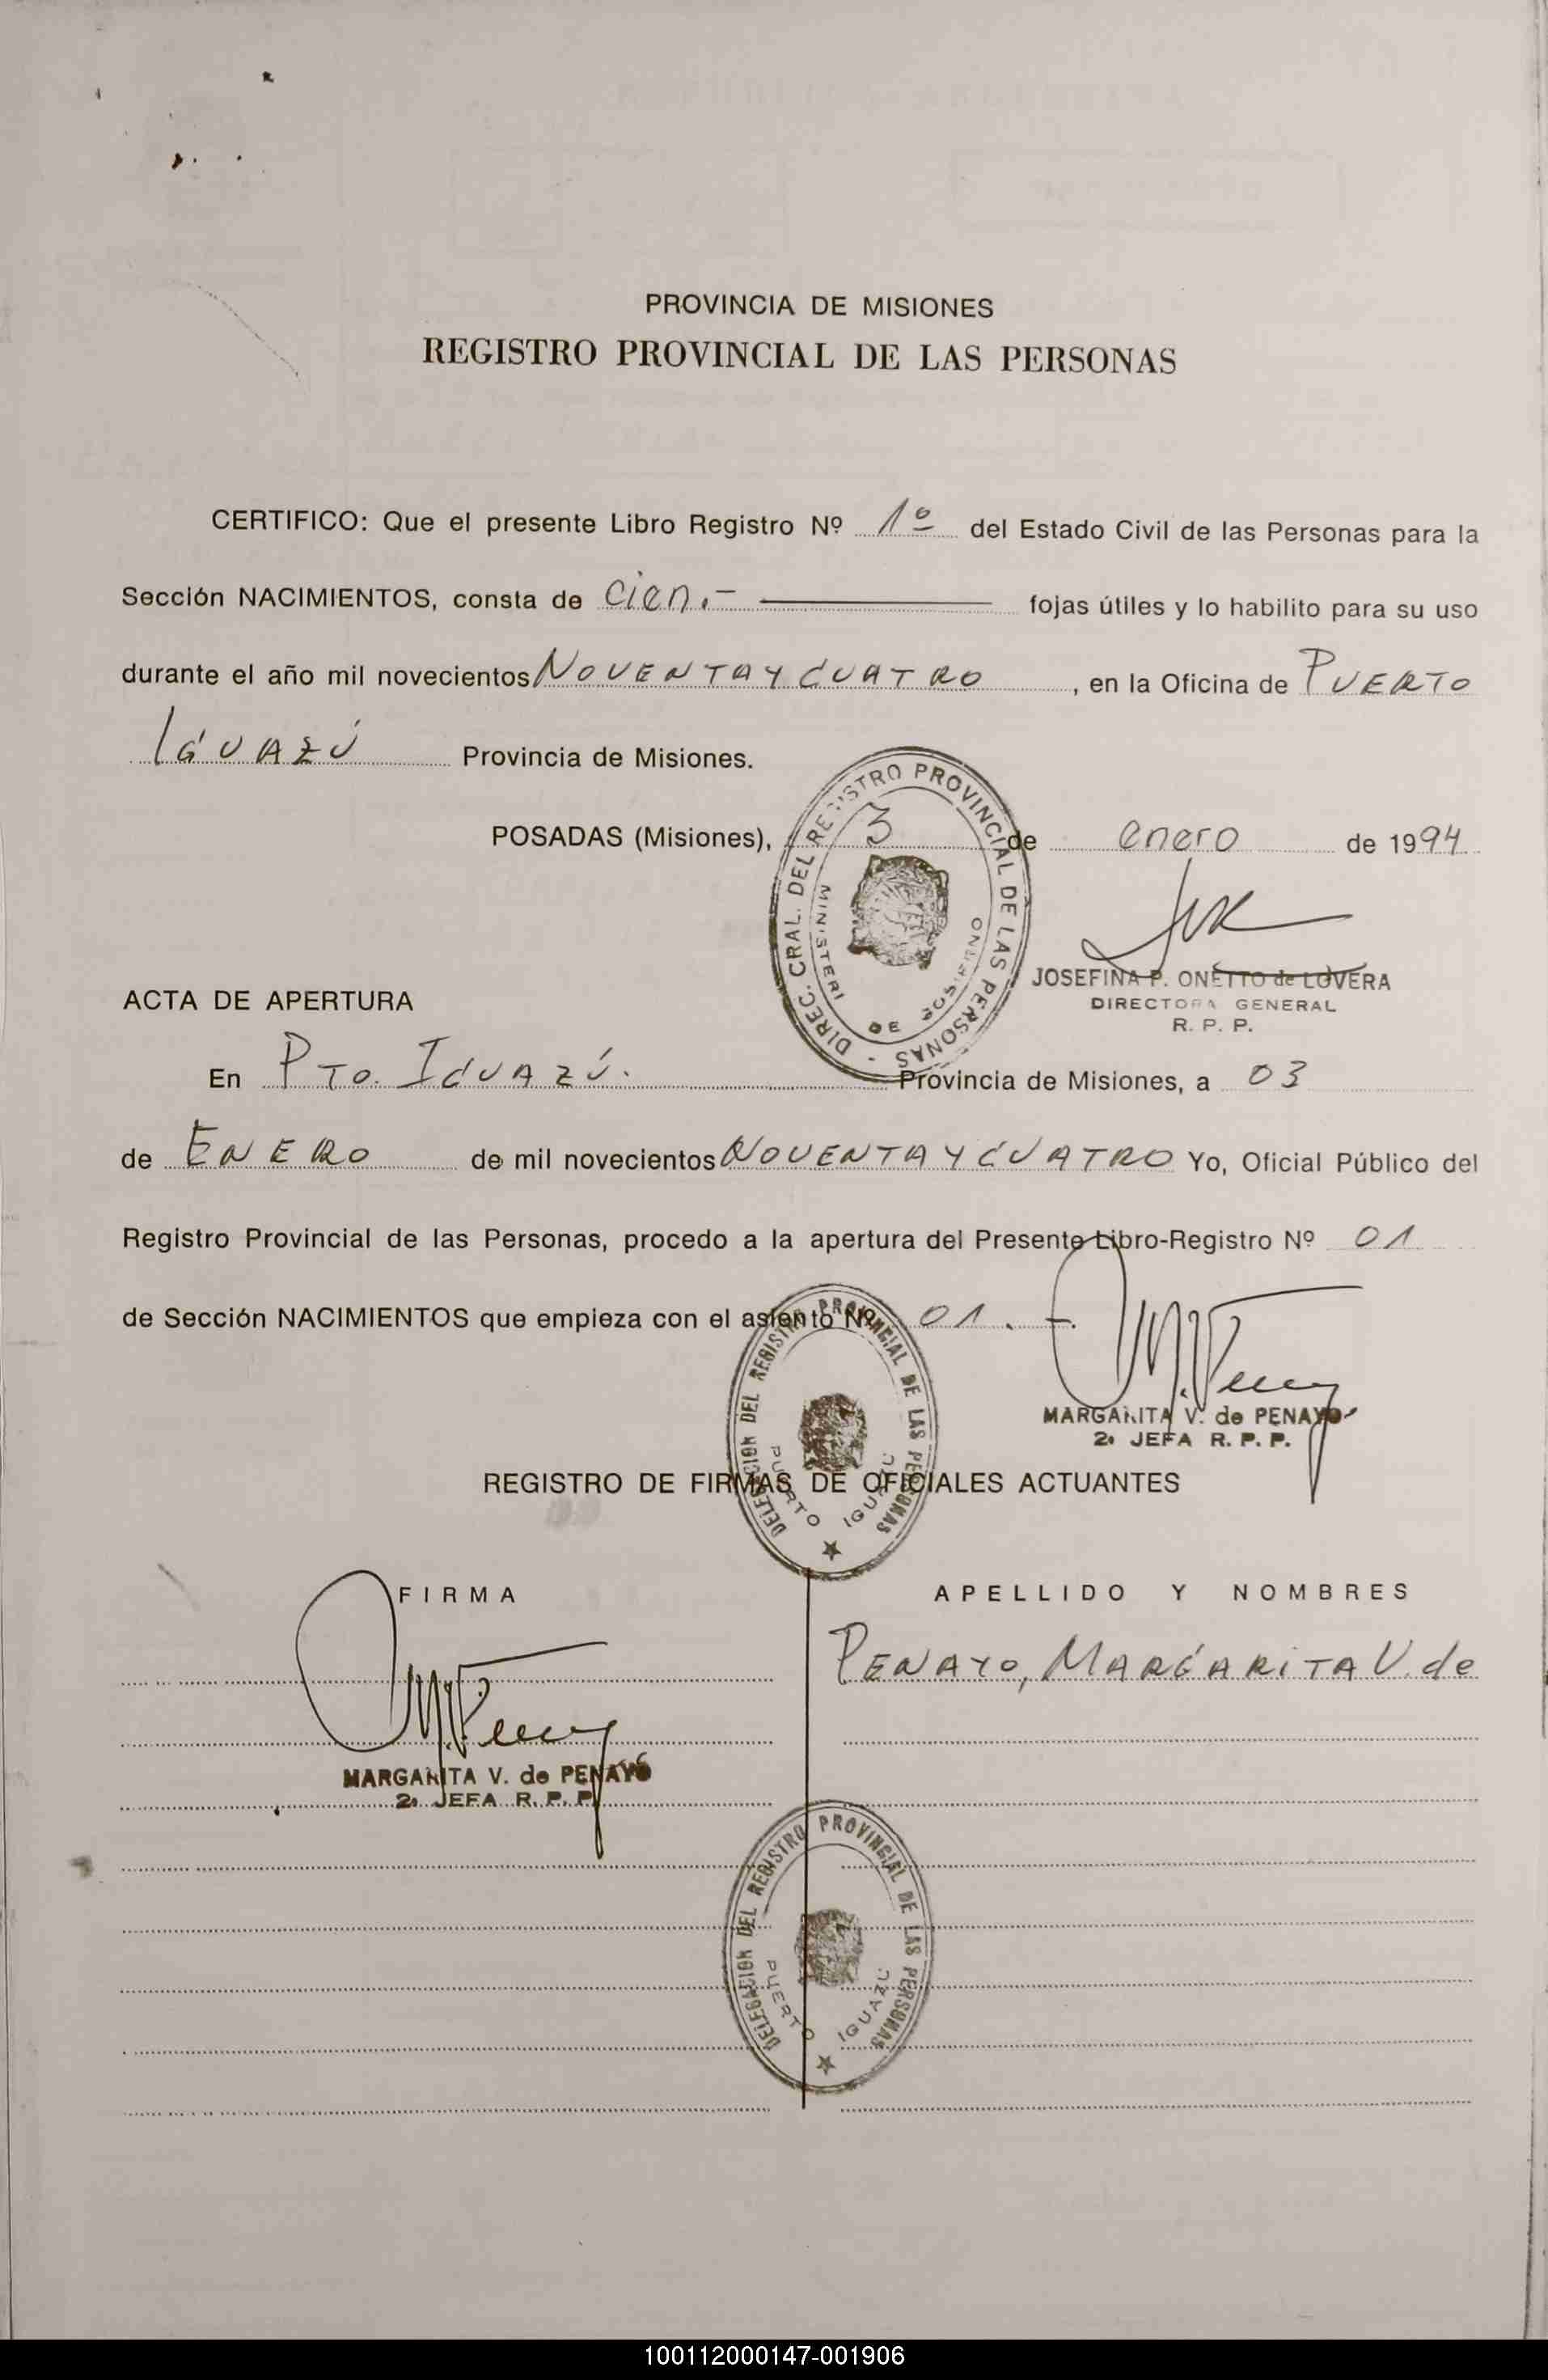 PROVINCIA DE MISIONES
REGISTRO PROVINCIAL DE LAS PERSONAS
CERTIFICO: Que el presente Libro Registro Nº 1º del Estado Civil de las Personas para la
Sección NACIMIENTOS, consta de cien.- fojas útiles y lo habilito para su uso
durante el año mil novecientos NOVENTA Y CUATRO, en la Oficina de PUERTO
IGUAZÚ Provincia de Misiones.
POSADAS (Misiones), 3 de enero de 1994
DIREC. GRAL. DEL REGISTRO PROVINCIAL DE LAS PERSONAS
MINISTERI DE GOBIERNO
JOSEFINA P. ONETTO de LOVERA
DIRECTORA GENERAL
R. P. P.
ACTA DE APERTURA
En PTO. IGUAZÚ. Provincia de Misiones, a 03
de ENERO de mil novecientos NOVENTA Y CUATRO Yo, Oficial Público del
Registro Provincial de las Personas, procedo a la apertura del Presente Libro-Registro Nº 01
de Sección NACIMIENTOS que empieza con el asiento Nº 01.-
DELEGACION DEL REGISTRO PROVINCIAL DE LAS PERSONAS
PUERTO IGUAZU
MARGARITA V. de PENAYO
2a JEFA R. P. P.
REGISTRO DE FIRMAS DE OFICIALES ACTUANTES
FIRMA APELLIDO Y NOMBRES
PENAYO, MARGARITA V. de
MARGARITA V. de PENAYO
2a JEFA R. P. P.
DELEGACION DEL REGISTRO PROVINCIAL DE LAS PERSONAS
PUERTO IGUAZU
100112000147-001906